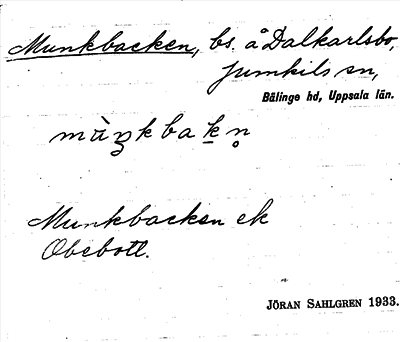 Munkbacken, bs. å Dalkarlsbo,
Jumkils sn,
Bälinge hd, Uppsala län.
mùŋkbakn̥
Munkbacken ek
Obebott.
JÖRAN SAHLGREN 1933.